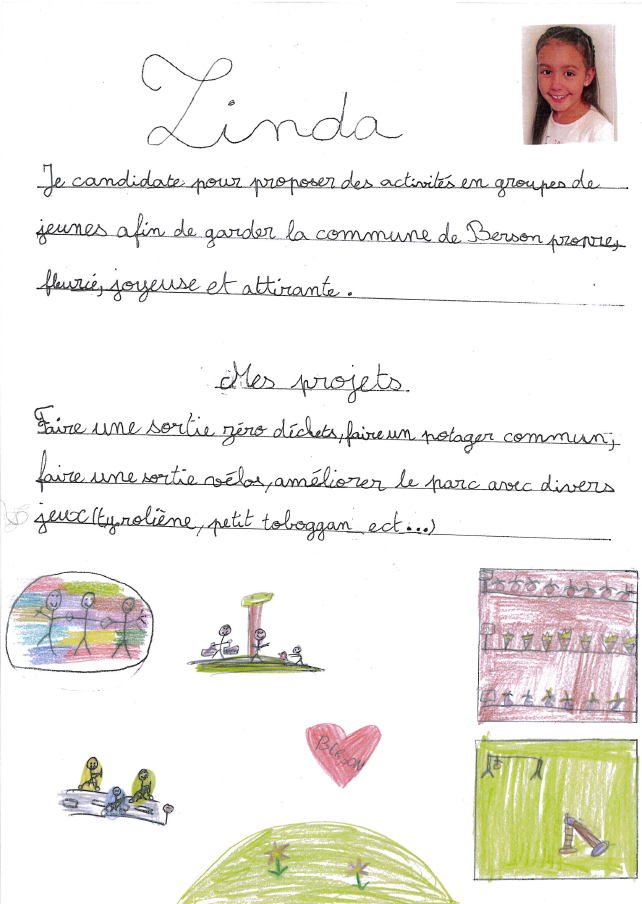 Linda
Je candidate pour proposer des activités en groupes de
jeunes afin de garder la commune de Berson propre,
fleurie, joyeuse et attirante.
Mes projets
Faire une sortie zéro déchets, faire un potager commun,
faire une sortie vélos, améliorer le parc avec divers
jeux (tyroliène, petit toboggan ect...)
BERSON